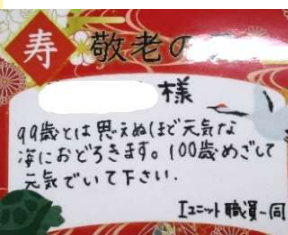 寿
敬老の
様
99歳とは思えぬほど元気な
姿におどろきます。100歳めざして
元気でいて下さい.
Iユニット職員一同